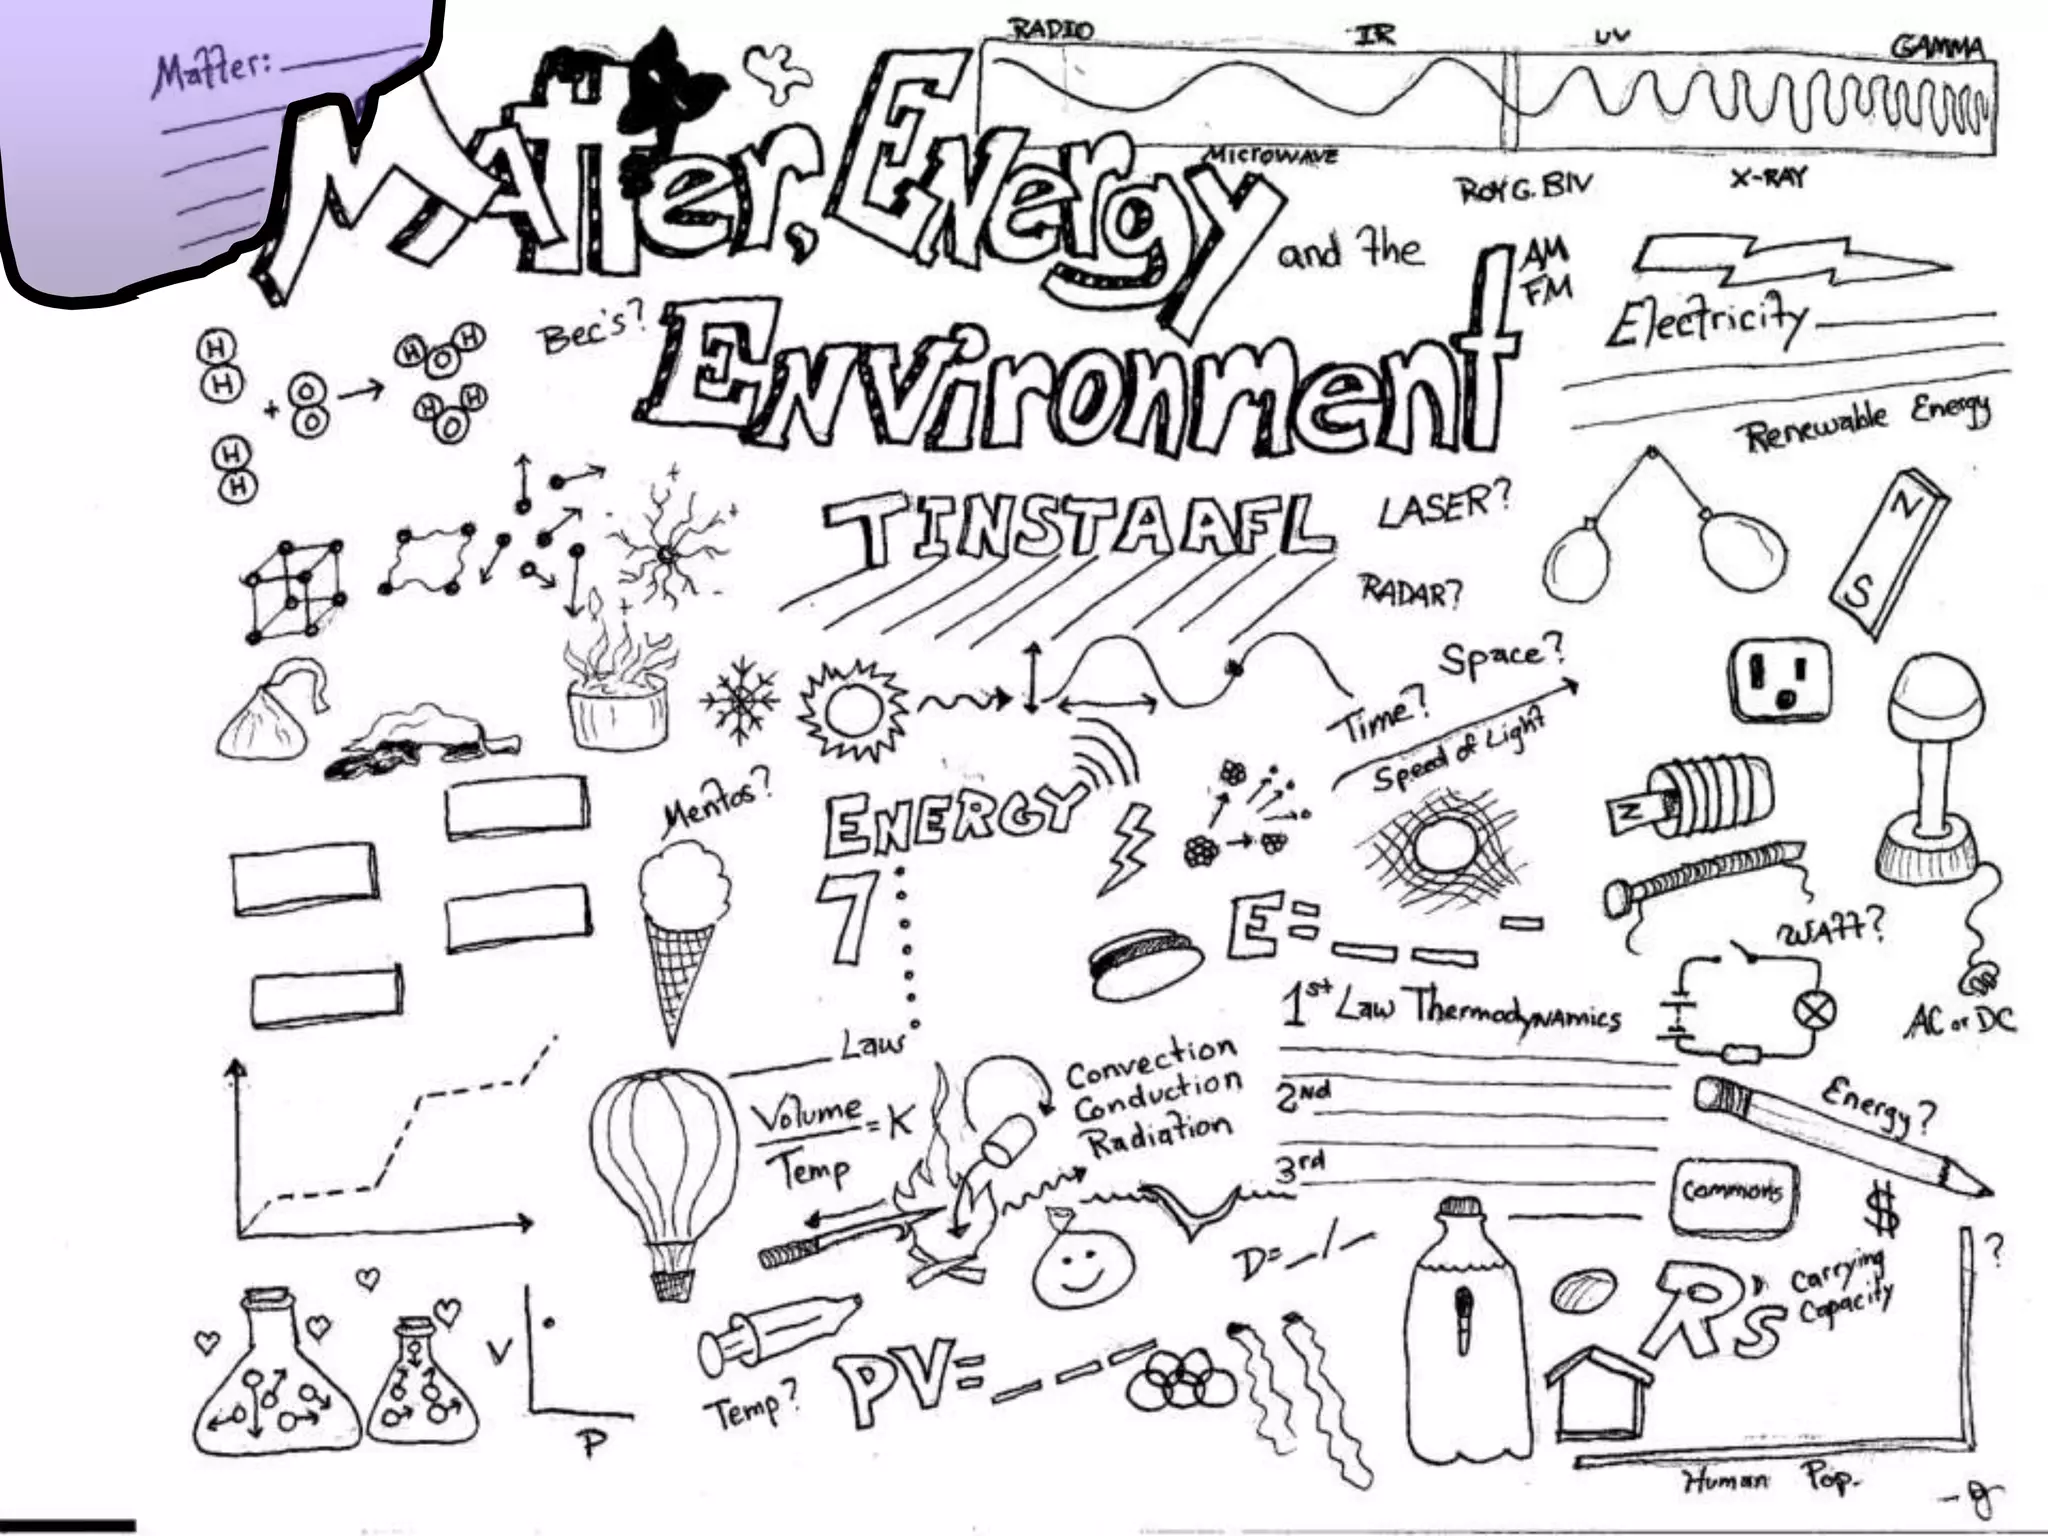 Matter:
RADIO IR UV GAMMA
MATTER, ENERGY
MICROWAVE
ROY G. BIV
X-RAY
and the
AM
FM
ENVironment
Electricity
Renewable Energy
H
H
+
O
O
H O H
H O H
H
H
Bec's?
TINSTAAFL
LASER?
RADAR?
Space?
Time?
Speed of Light
N
S
+
-
+
+
-
Mentos?
ENERGY
7
N
E=
WATT?
AC or DC
1st Law Thermodynamics
2nd
3rd
Law
Volume
= K
Temp
Convection
Conduction
Radiation
Energy?
Commons
$
?
D= _ / _
Rs
Carrying
Capacity
V
P
Temp?
PV= _ _ _
Human Pop.